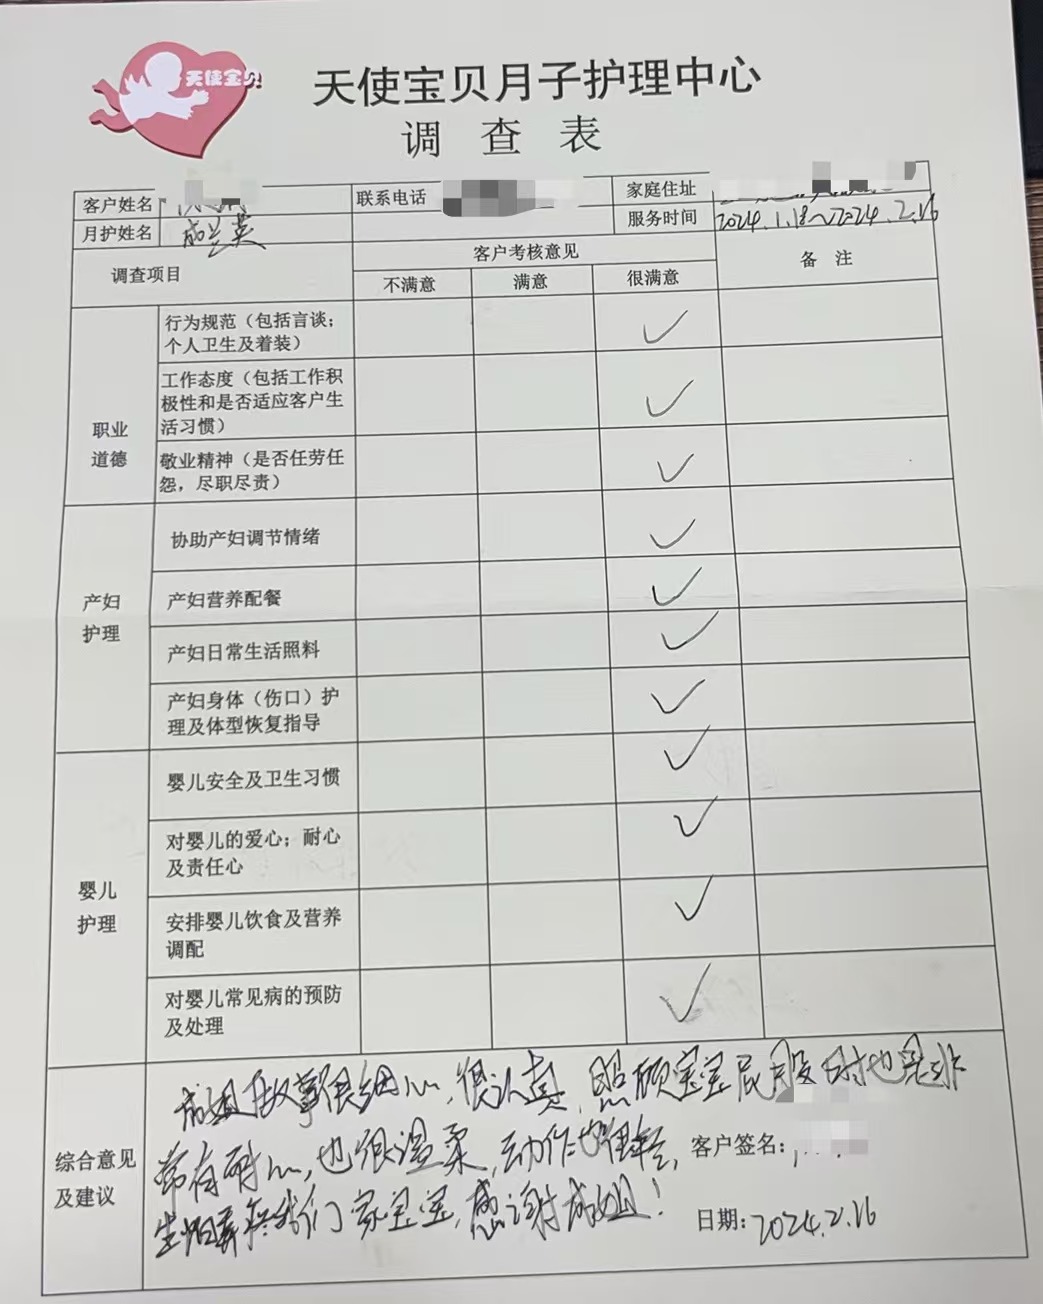 天使宝贝
天使宝贝月子护理中心
调查表
客户姓名 联系电话 家庭住址
月护姓名 成兰英 服务时间 2024.1.18~2024.2.16
调查项目 客户考核意见 备注
不满意 满意 很满意
职业
道德
行为规范（包括言谈；
个人卫生及着装） ✓
工作态度（包括工作积
极性和是否适应客户生
活习惯） ✓
敬业精神（是否任劳任
怨，尽职尽责） ✓
产妇
护理
协助产妇调节情绪 ✓
产妇营养配餐 ✓
产妇日常生活照料 ✓
产妇身体（伤口）护
理及体型恢复指导 ✓
婴儿
护理
婴儿安全及卫生习惯 ✓
对婴儿的爱心；耐心
及责任心 ✓
安排婴儿饮食及营养
调配 ✓
对婴儿常见病的预防
及处理 ✓
综合意见
及建议
成姐做事很细心，很认真，照顾宝宝屁股时也是非
常有耐心，也很温柔，动作也很轻，
生怕弄疼我们家宝宝，感谢成姐！
客户签名：
日期：2024.2.16